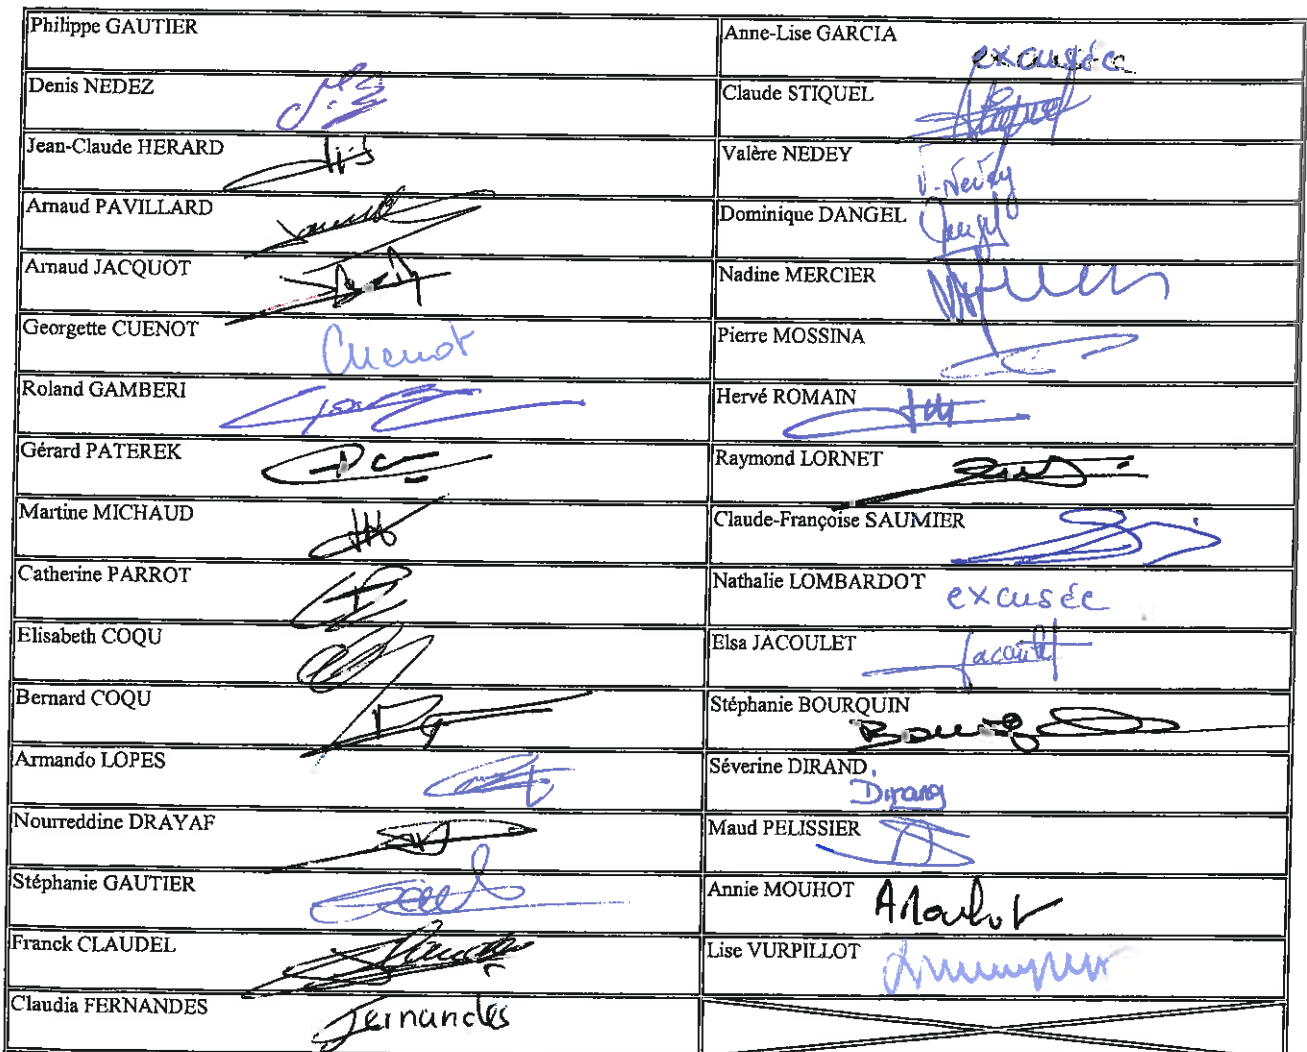 Philippe GAUTIER
Anne-Lise GARCIA excusée
Denis NEDEZ
Claude STIQUEL
Jean-Claude HERARD
Valère NEDEY V. Nedey
Arnaud PAVILLARD
Dominique DANGEL
Arnaud JACQUOT
Nadine MERCIER
Georgette CUENOT Cuenot
Pierre MOSSINA
Roland GAMBERI
Hervé ROMAIN
Gérard PATEREK
Raymond LORNET
Martine MICHAUD
Claude-Françoise SAUMIER
Catherine PARROT
Nathalie LOMBARDOT excusée
Elisabeth COQU
Elsa JACOULET Jacoulet
Bernard COQU
Stéphanie BOURQUIN
Armando LOPES
Séverine DIRAND Dirand
Nourreddine DRAYAF
Maud PELISSIER
Stéphanie GAUTIER
Annie MOUHOT AMouhot
Franck CLAUDEL
Lise VURPILLOT
Claudia FERNANDES Fernandes